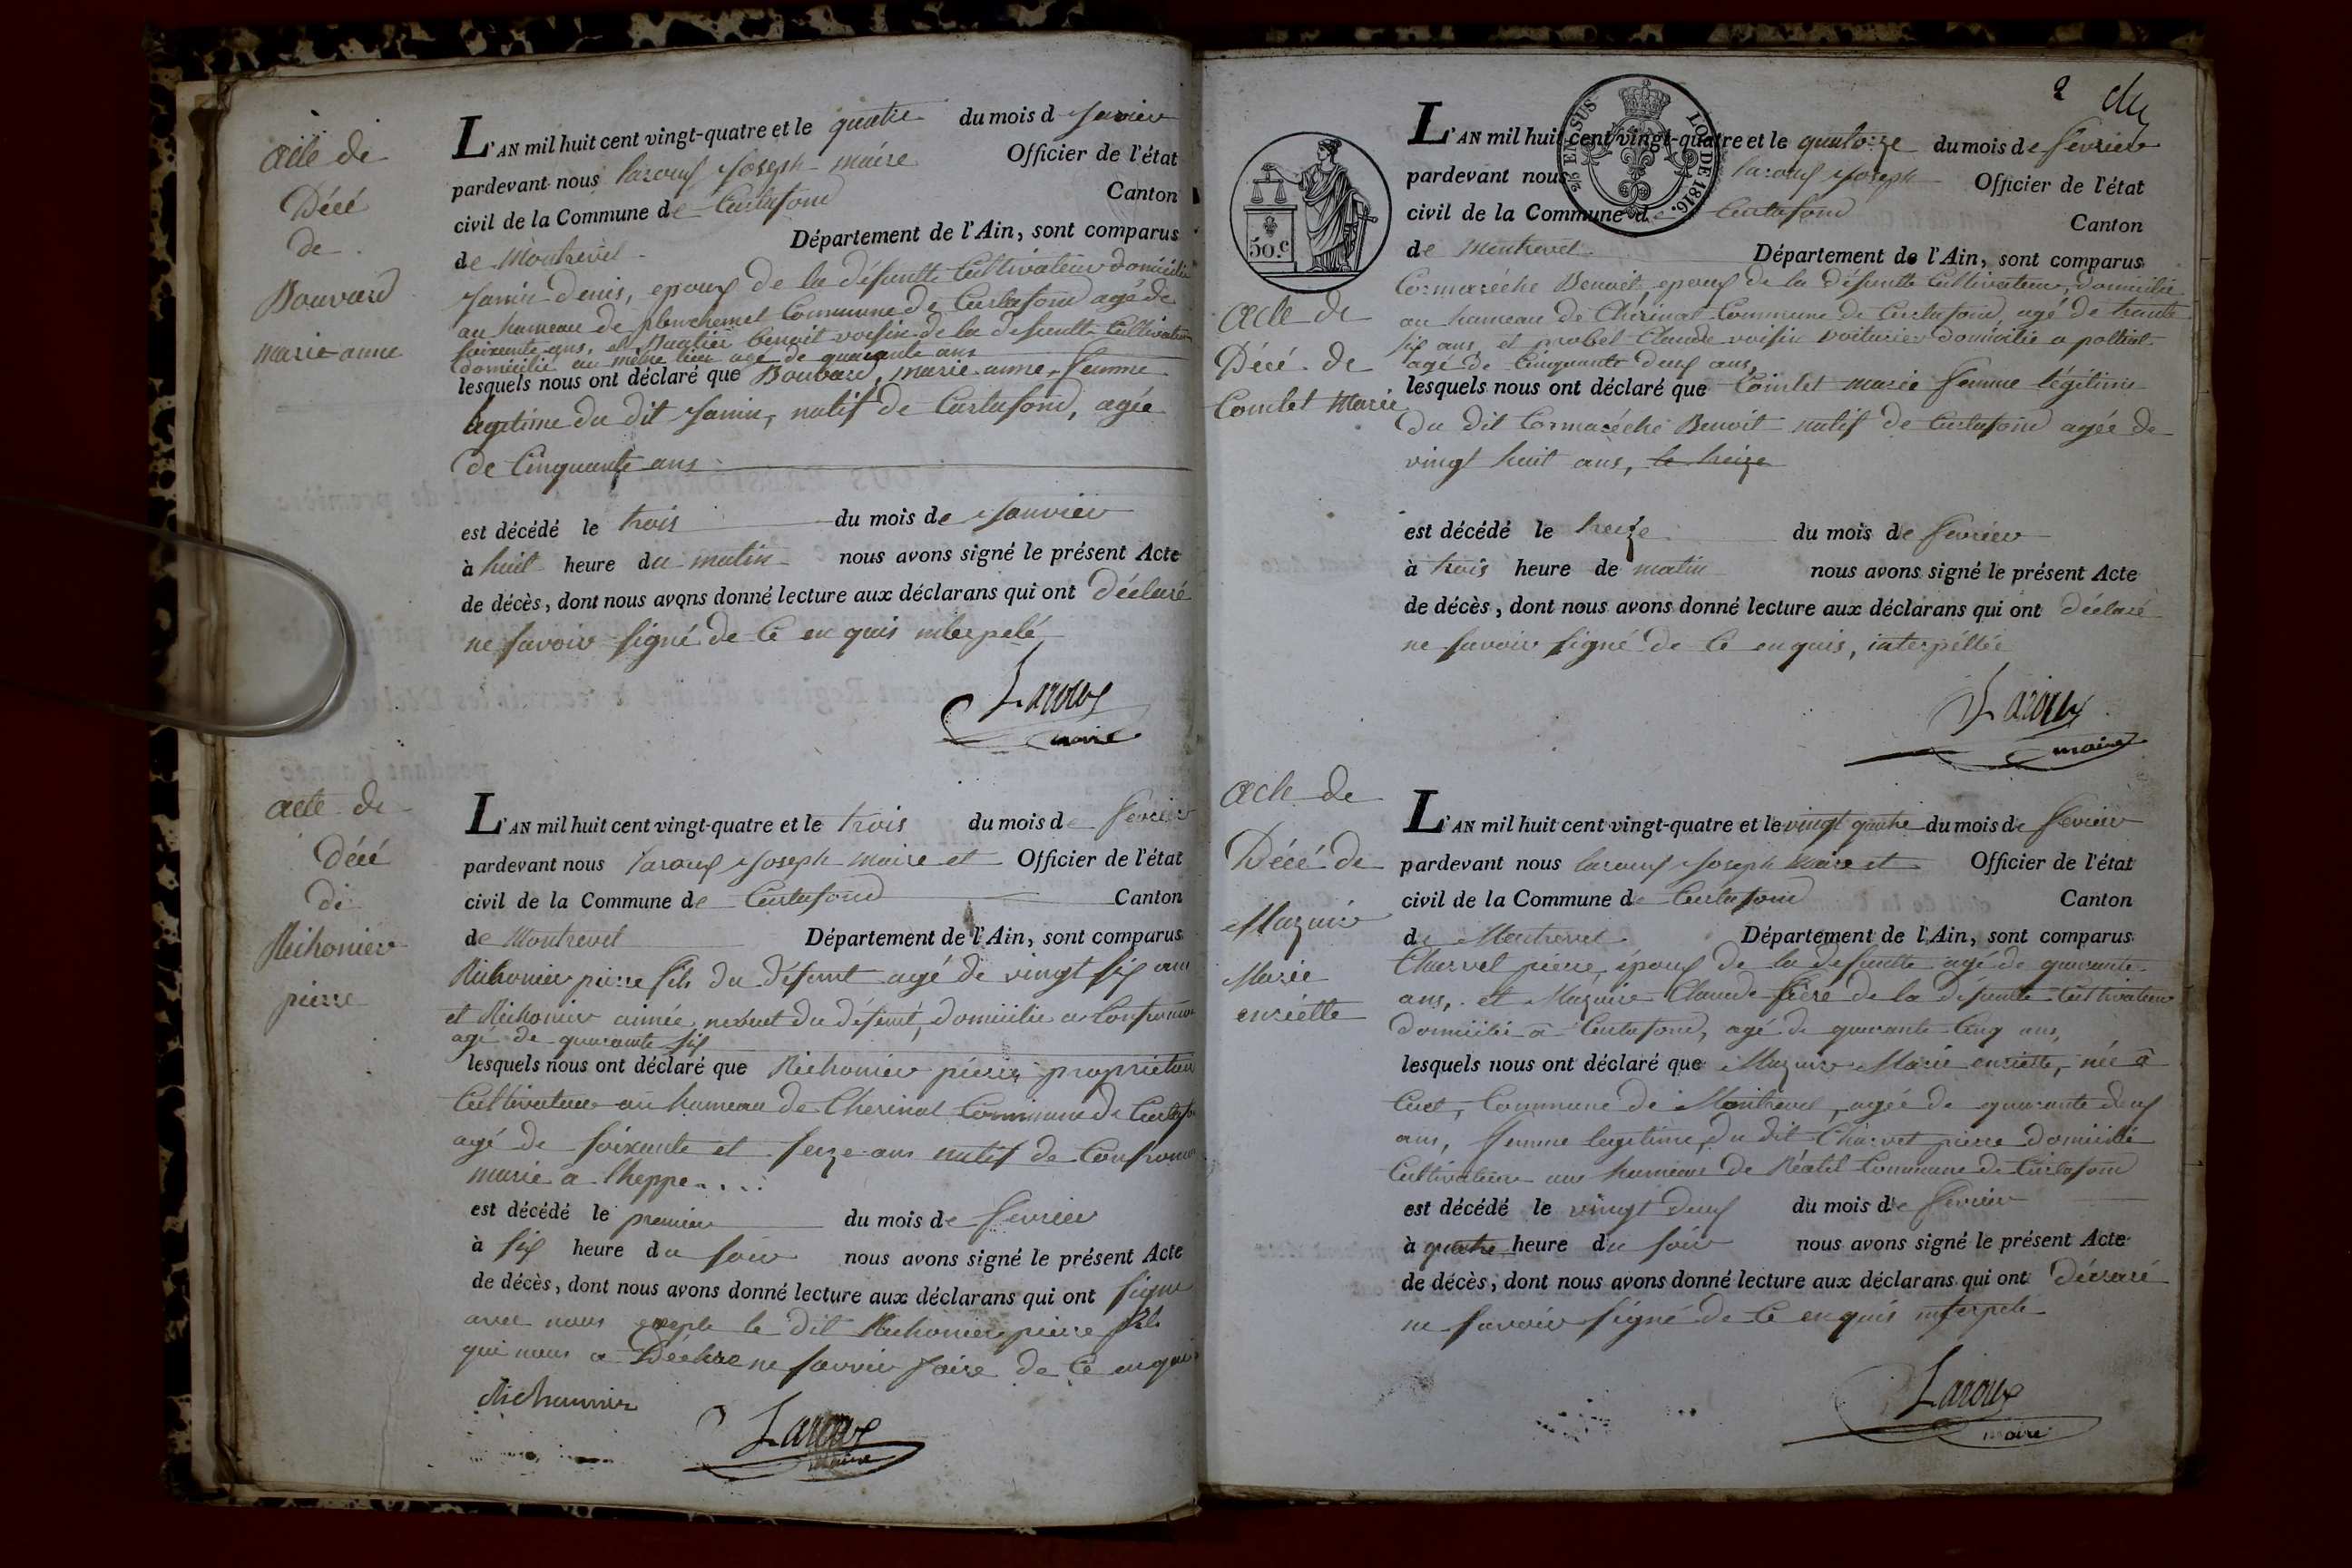 acte de
Décé
de
Bouvard
marie anne
L'AN mil huit cent vingt-quatre et le quatre du mois d Janvier
pardevant nous Laroux Joseph maire Officier de l'état
civil de la Commune de Curtafond Canton
de Montrevel Département de l'Ain, sont comparus
Janin Denis, epoux de la défunte Cultivateur domicilié
au hameau de Commune de Curtafond agé de
soixante ans, et benoit voisin de la défunte Cultivateur
domicilié au même lieu agé de quarante ans
lesquels nous ont déclaré que Bouvard, marie anne femme
legitime du dit Janin, natif de Curtafond, agée
de Cinquante ans
est décédé le trois du mois de Janvier
à huit heure du matin nous avons signé le présent Acte
de décès, dont nous avons donné lecture aux déclarans qui ont déclaré
ne savoir signé de ce enquis interpelé
Laroux
maire
acte de
Décé
de
Richonier
pierre
L'AN mil huit cent vingt-quatre et le trois du mois de fevrier
pardevant nous Laroux Joseph maire et Officier de l'état
civil de la Commune de Curtafond Canton
de Montrevel Département de l'Ain, sont comparus
Richonier pierre fils du défunt agé de vingt six ans
et Richonier aimée du défunt, domicilié a
agé de quarante six
lesquels nous ont déclaré que Richonier pierre proprietaire
Cultivateur au hameau de Cherinal Commune de
agé de soixante et seize ans natif de
marié a
est décédé le premier du mois de fevrier
à six heure du soir nous avons signé le présent Acte
de décès, dont nous avons donné lecture aux déclarans qui ont signé
avec nous excepte le dit Richonier pierre fils
qui nous a Déclaré ne savoir faire de ce enquis
Laroux
maire
2
50.c
2/5 EN SUS
LOI DE 1816.
acte de
Décé de
Comtet Marie
L'AN mil huit cent vingt-quatre et le quatorze du mois de fevrier
pardevant nous Laroux Joseph Officier de l'état
civil de la Commune de Curtafond Canton
de Montrevel Département de l'Ain, sont comparus
Cormaréche Benoit epoux de la défunte Cultivateur, domicilié
au hameau de Chérinal Commune de Curtafond, agé de trente
six ans, et probet Claude voisin voiturier domicilié a polliat
agé de Cinquante deux ans,
lesquels nous ont déclaré que Comtet marie femme légitime
du dit Cormaréche Benoit natif de Curtafond agée de
vingt huit ans, le treize
est décédé le treize du mois de fevrier
à trois heure de matin nous avons signé le présent Acte
de décès, dont nous avons donné lecture aux déclarans qui ont déclaré
ne savoir signé de ce enquis, interpéllée
Laroux
maire
acte de
Décé de
Mazuir
Marie
enriette
L'AN mil huit cent vingt-quatre et le vingt quatre du mois de fevrier
pardevant nous Laroux Joseph Maire et Officier de l'état
civil de la Commune de Curtafond Canton
de Montrevel Département de l'Ain, sont comparus
Charvet pierre, époux de la defunte agé de quarante
ans, et Mazuire Claude frère de la defunte Cultivateur
domicilié à Curtafond, agé de quarante Cinq ans,
lesquels nous ont déclaré que Mazuire Marie enriette, née à
Cuet, Commune de Montrevel, agée de quarante deux
ans, femme legitime du dit Charvet pierre domicilié
Cultivateur aux hameau de Commune de Curtafond
est décédé le vingt deux du mois de fevrier
à quatre heure du soir nous avons signé le présent Acte
de décès, dont nous avons donné lecture aux déclarans qui ont déclaré
ne savoir signé de ce enquis interpelé
Laroux
maire